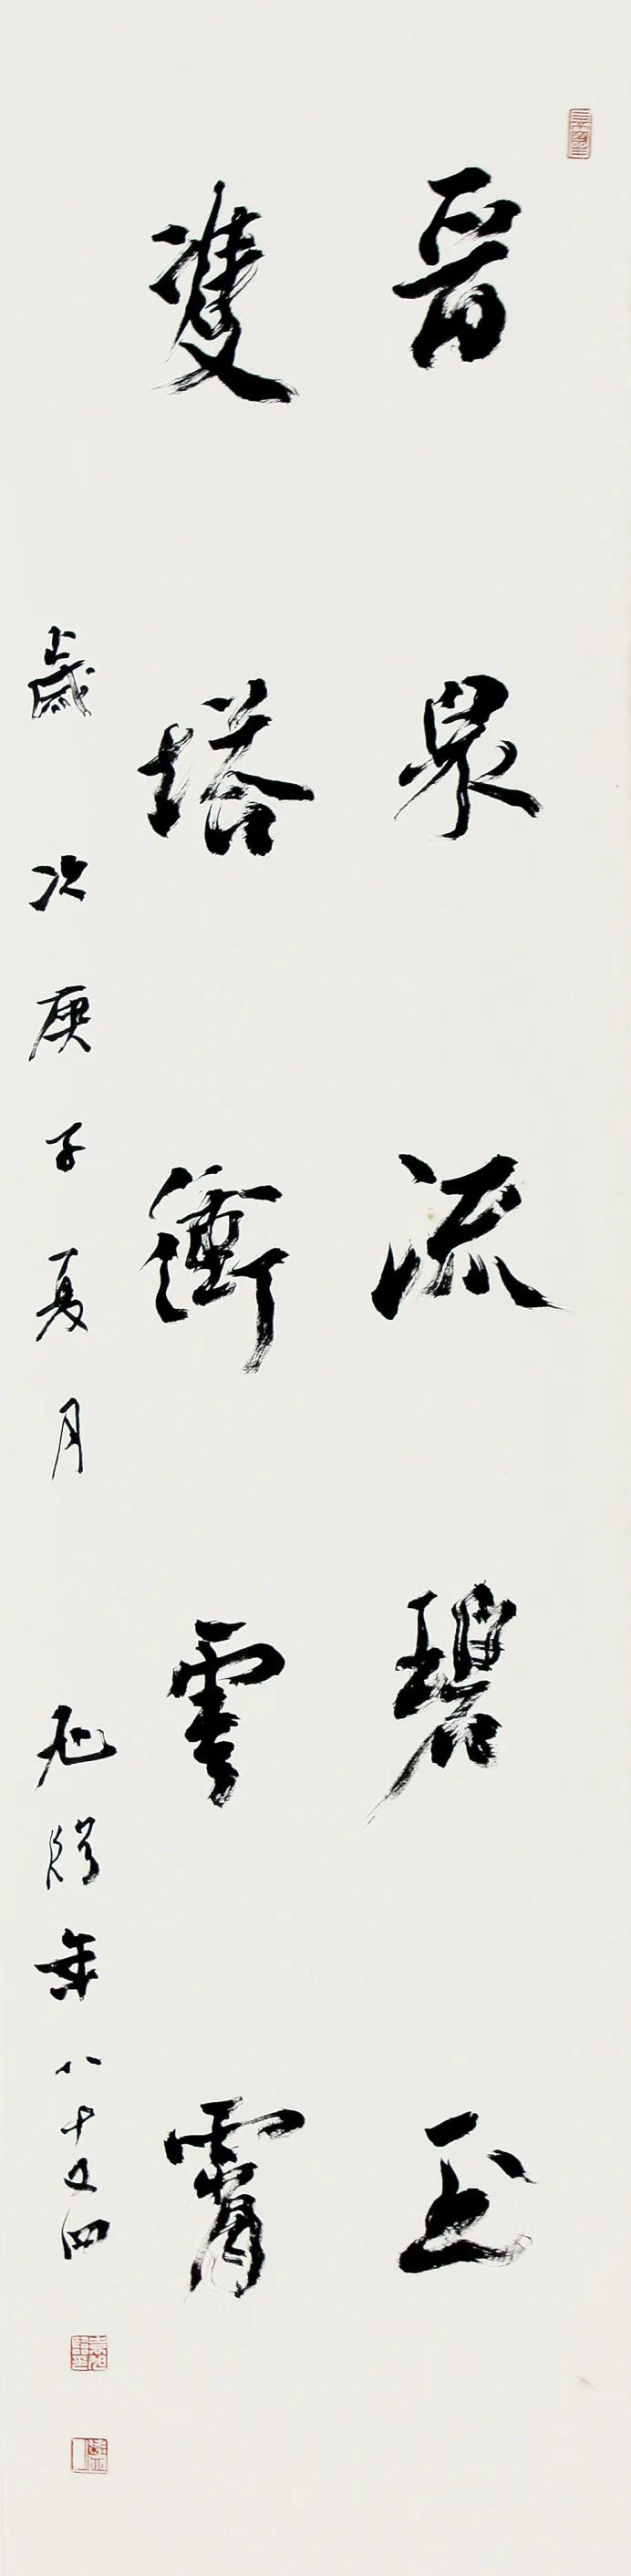 晉泉流碧玉
雙塔衝雲霄
歲次庚子夏月 旭臨年八十又四